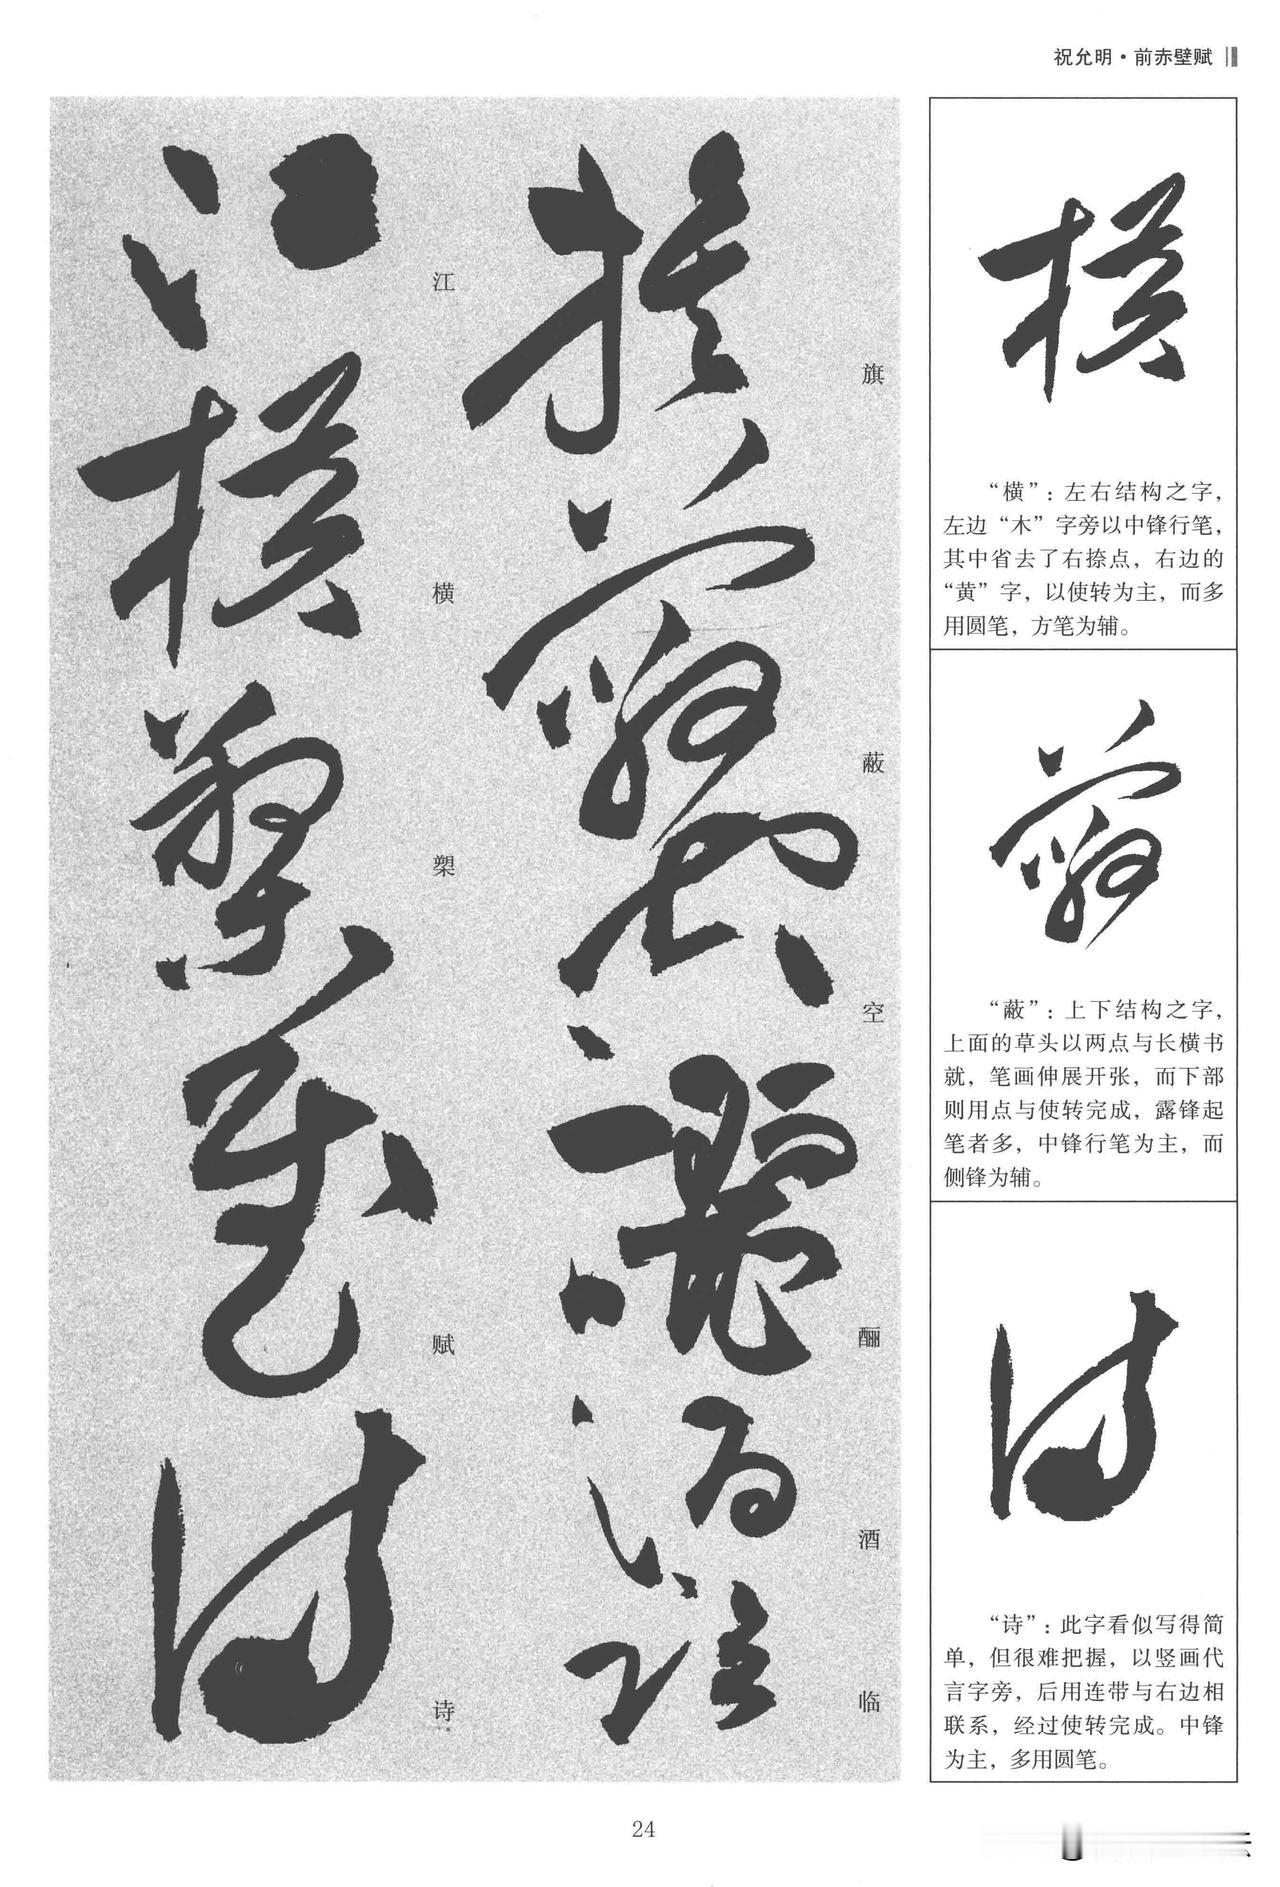 祝允明·前赤壁赋
旗蔽空酾酒临
江横槊赋诗
“横”：左右结构之字，
左边“木”字旁以中锋行笔，
其中省去了右捺点，右边的
“黄”字，以使转为主，而多
用圆笔，方笔为辅。
“蔽”：上下结构之字，
上面的草头以两点与长横书
就，笔画伸展开张，而下部
则用点与使转完成，露锋起
笔者多，中锋行笔为主，而
侧锋为辅。
“诗”：此字看似写得简
单，但很难把握，以竖画代
言字旁，后用连带与右边相
联系，经过使转完成。中锋
为主，多用圆笔。
24